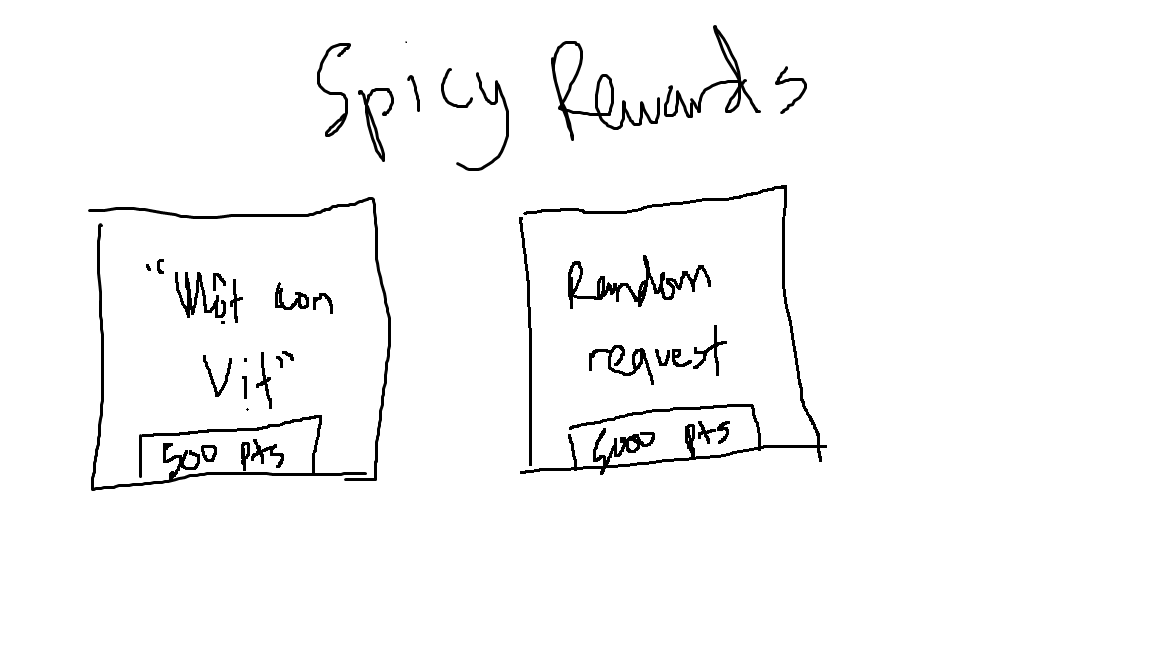 Spicy Rewards
"Một con
Vịt"
500 pts
Random
request
5000 pts